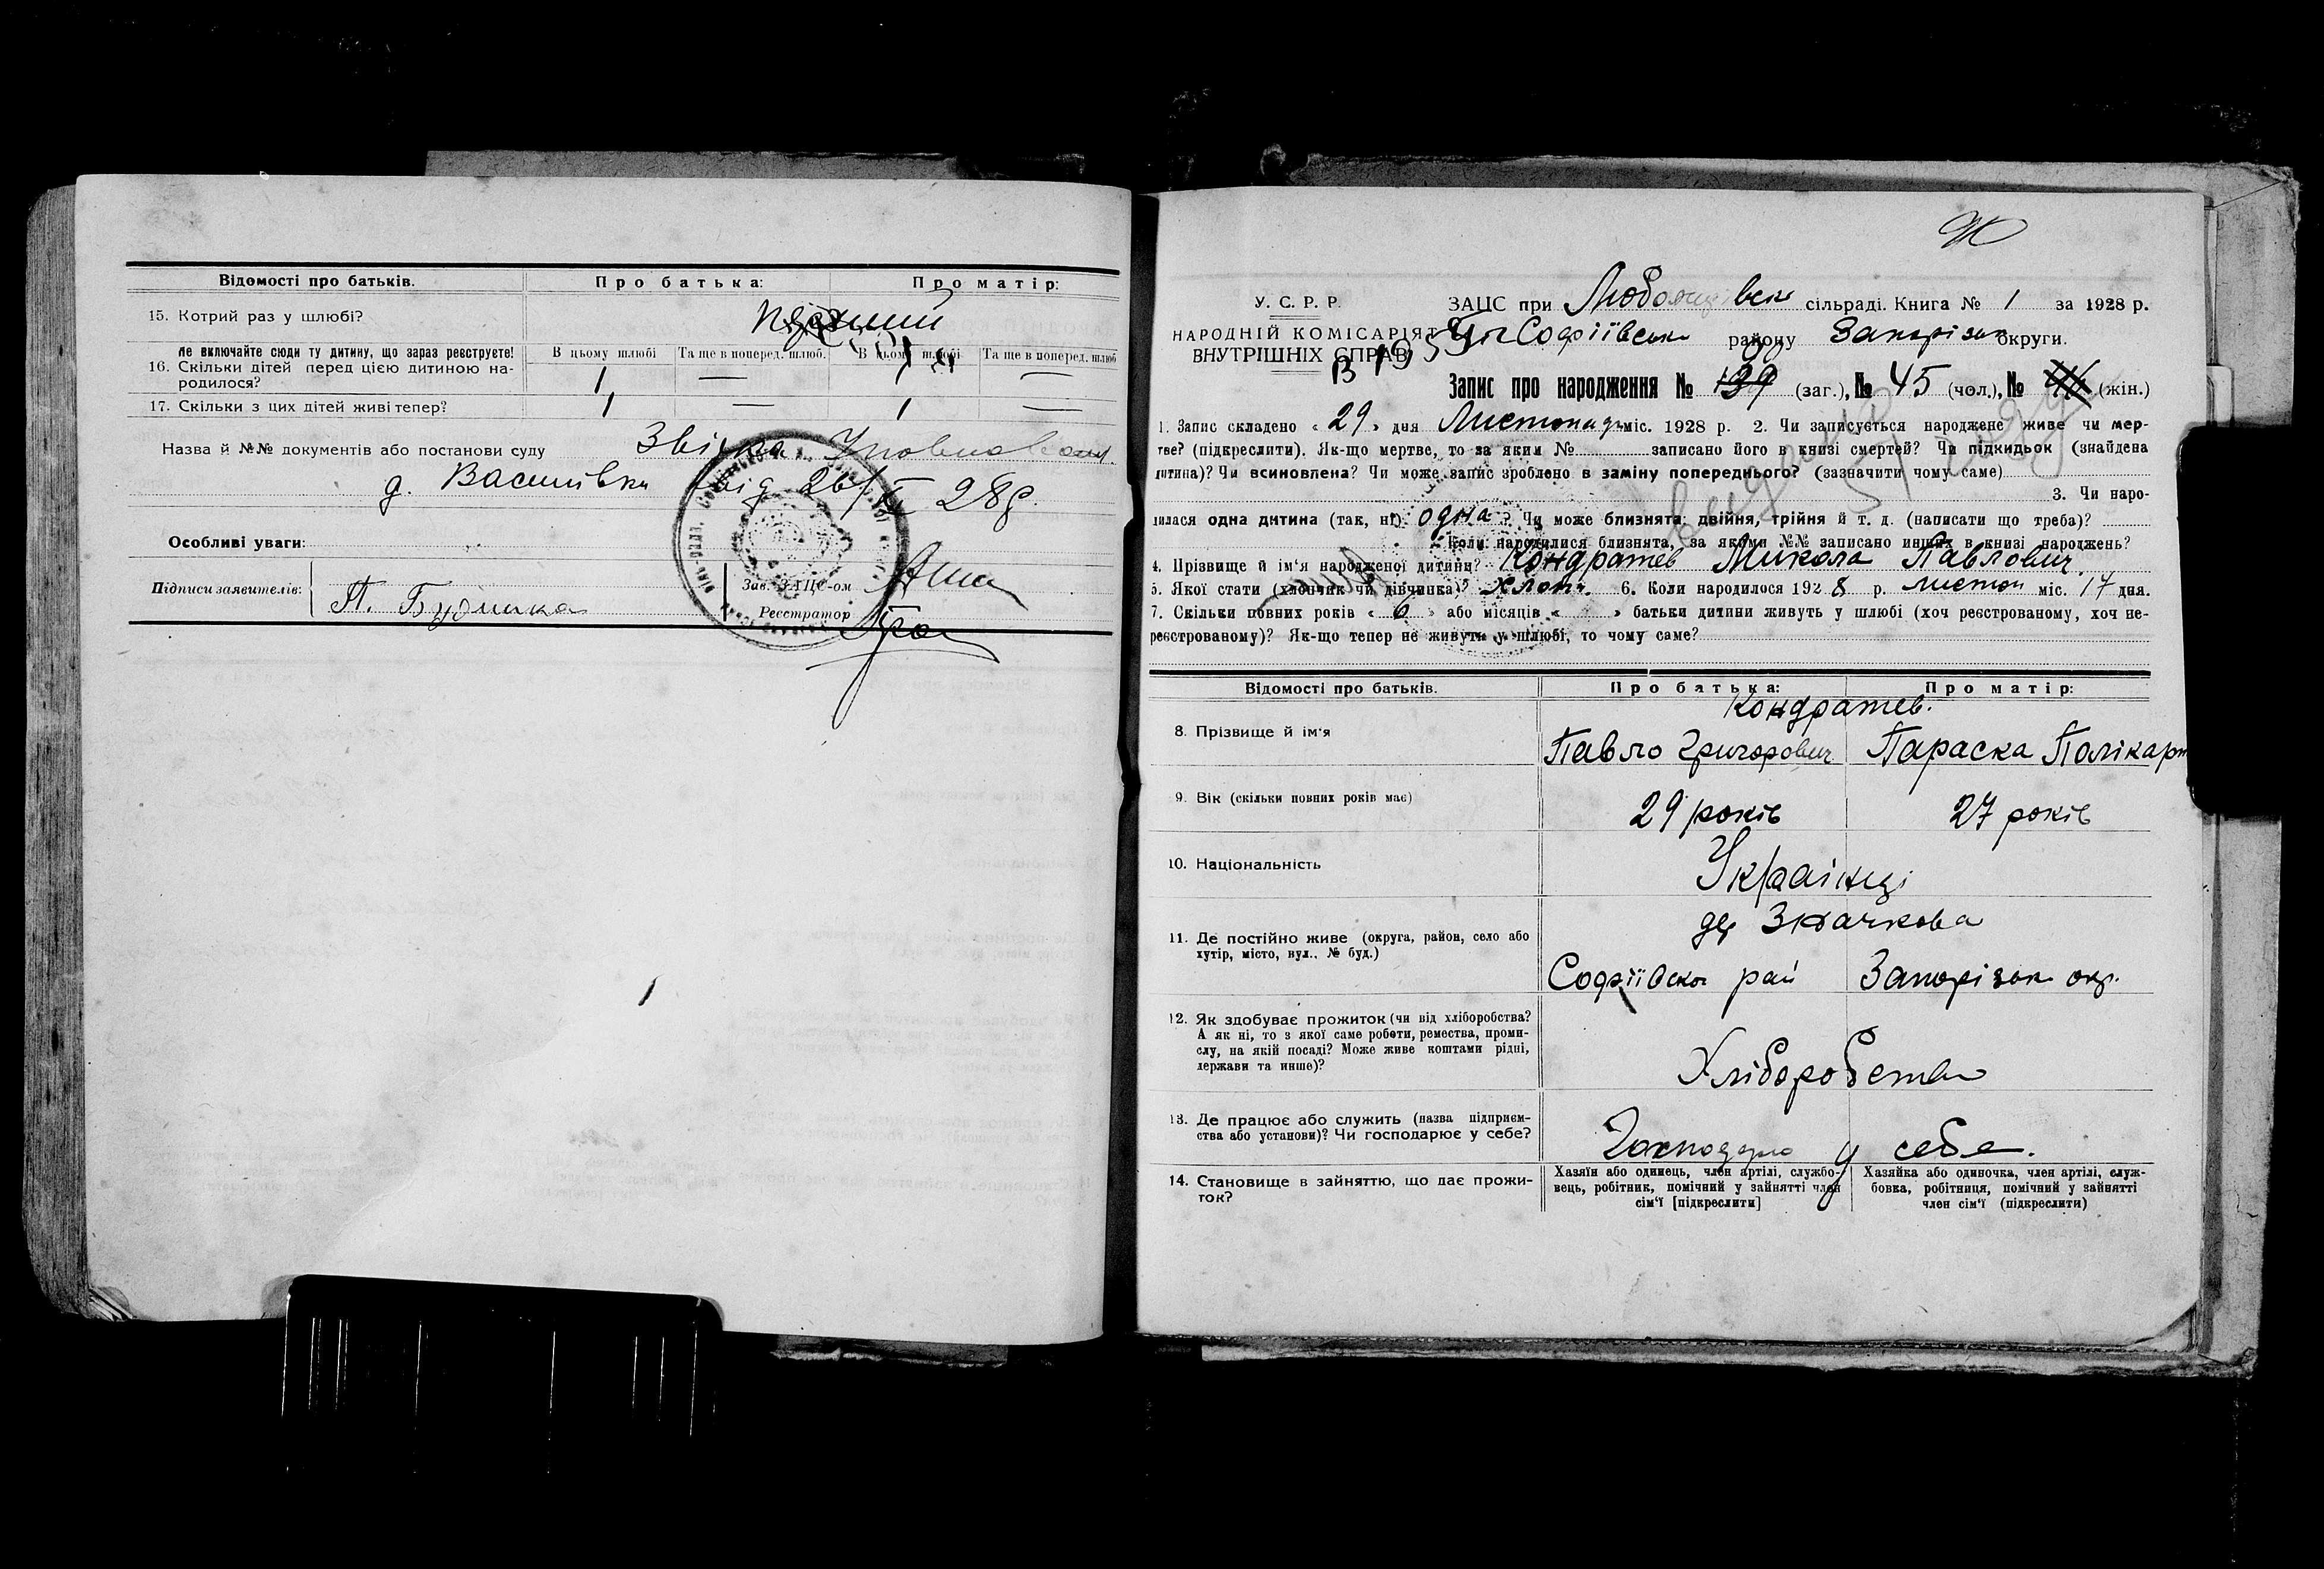 Відомості про батьків. Про батька: Про матір:
15. Котрий раз у шлюбі?
Не включайте сюди ту дитину, що зараз реєструєте! В цьому шлюбі Та ще в поперед. шлюб. В цьому шлюбі Та ще в поперед. шлюб
16. Скільки дітей перед цією дитиною на-
родилося? 1 — 1 —
17. Скільки з цих дітей живі тепер? 1 — 1 —
Назва й №№ документів або постанови суду
д. Василівки від 26/XI 28р.
Особливі уваги:
Підписи заявителів:
Зав. ЗАЦС-ом
Реєстратор
У. С. Р. Р. ЗАЦС при сільраді. Книга № 1 за 1928 р.
НАРОДНІЙ КОМІСАРІЯТ Софіївськ району Запорізьк округи.
ВНУТРІШНІХ СПРАВ
Запис про народження № (заг.), № 45 (чол.), № (жін.)
1. Запис складено «29» дня Листопад міс. 1928 р. 2. Чи записується народжене живе чи мер-
тве? (підкреслити). Як-що мертве, то за яким № записано його в книзі смертей? Чи підкидьок (знайдена
дитина)? Чи всиновлена? Чи може запис зроблено в заміну попереднього? (зазначити чому саме)
3. Чи наро-
дилася одна дитина (так, ні) одна? Чи може близнята: двійня, трійня й т. д. (написати що треба)?
Коли народилися близнята, за якими №№ записано инших в книзі народжень?
4. Прізвище й ім'я народженої дитини? Кондратев Микола Павлович
5. Якої стати (хлопчик чи дівчинка)? Хлопч. 6. Коли народилося 1928 р. листоп міс. 17 дня.
7. Скільки повних років « 6 » або місяців « » батьки дитини живуть у шлюбі (хоч реєстрованому, хоч не-
реєстрованому)? Як-що тепер не живуть у шлюбі, то чому саме?
Відомості про батьків. Про батька: Про матір:
Кондратев.
8. Прізвище й ім'я Павло Григорович Параска Полікарп
9. Вік (скільки повних років має) 29 років 27 років
10. Національність Українці
11. Де постійно живе (округа, район, село або
хутір, місто, вул., № буд.) Значкова
Софіївськ рай Запорізьк окр.
12. Як здобуває прожиток (чи від хліборобства?
А як ні, то з якої саме роботи, ремества, проми-
слу, на якій посаді? Може живе коштами рідні,
держави та инше)? Хліборобство
13. Де працює або служить (назва підприєм-
ства або установи)? Чи господарює у себе? у себе.
14. Становище в зайняттю, що дає прожи-
ток?
Хазяїн або одинець, член артілі, службо-
вець, робітник, помічний у зайнятті член
сім'ї [підкреслити]
Хазяйка або одиночка, член артілі, служ-
бовка, робітниця, помічний у зайнятті
член сім'ї (підкреслити)